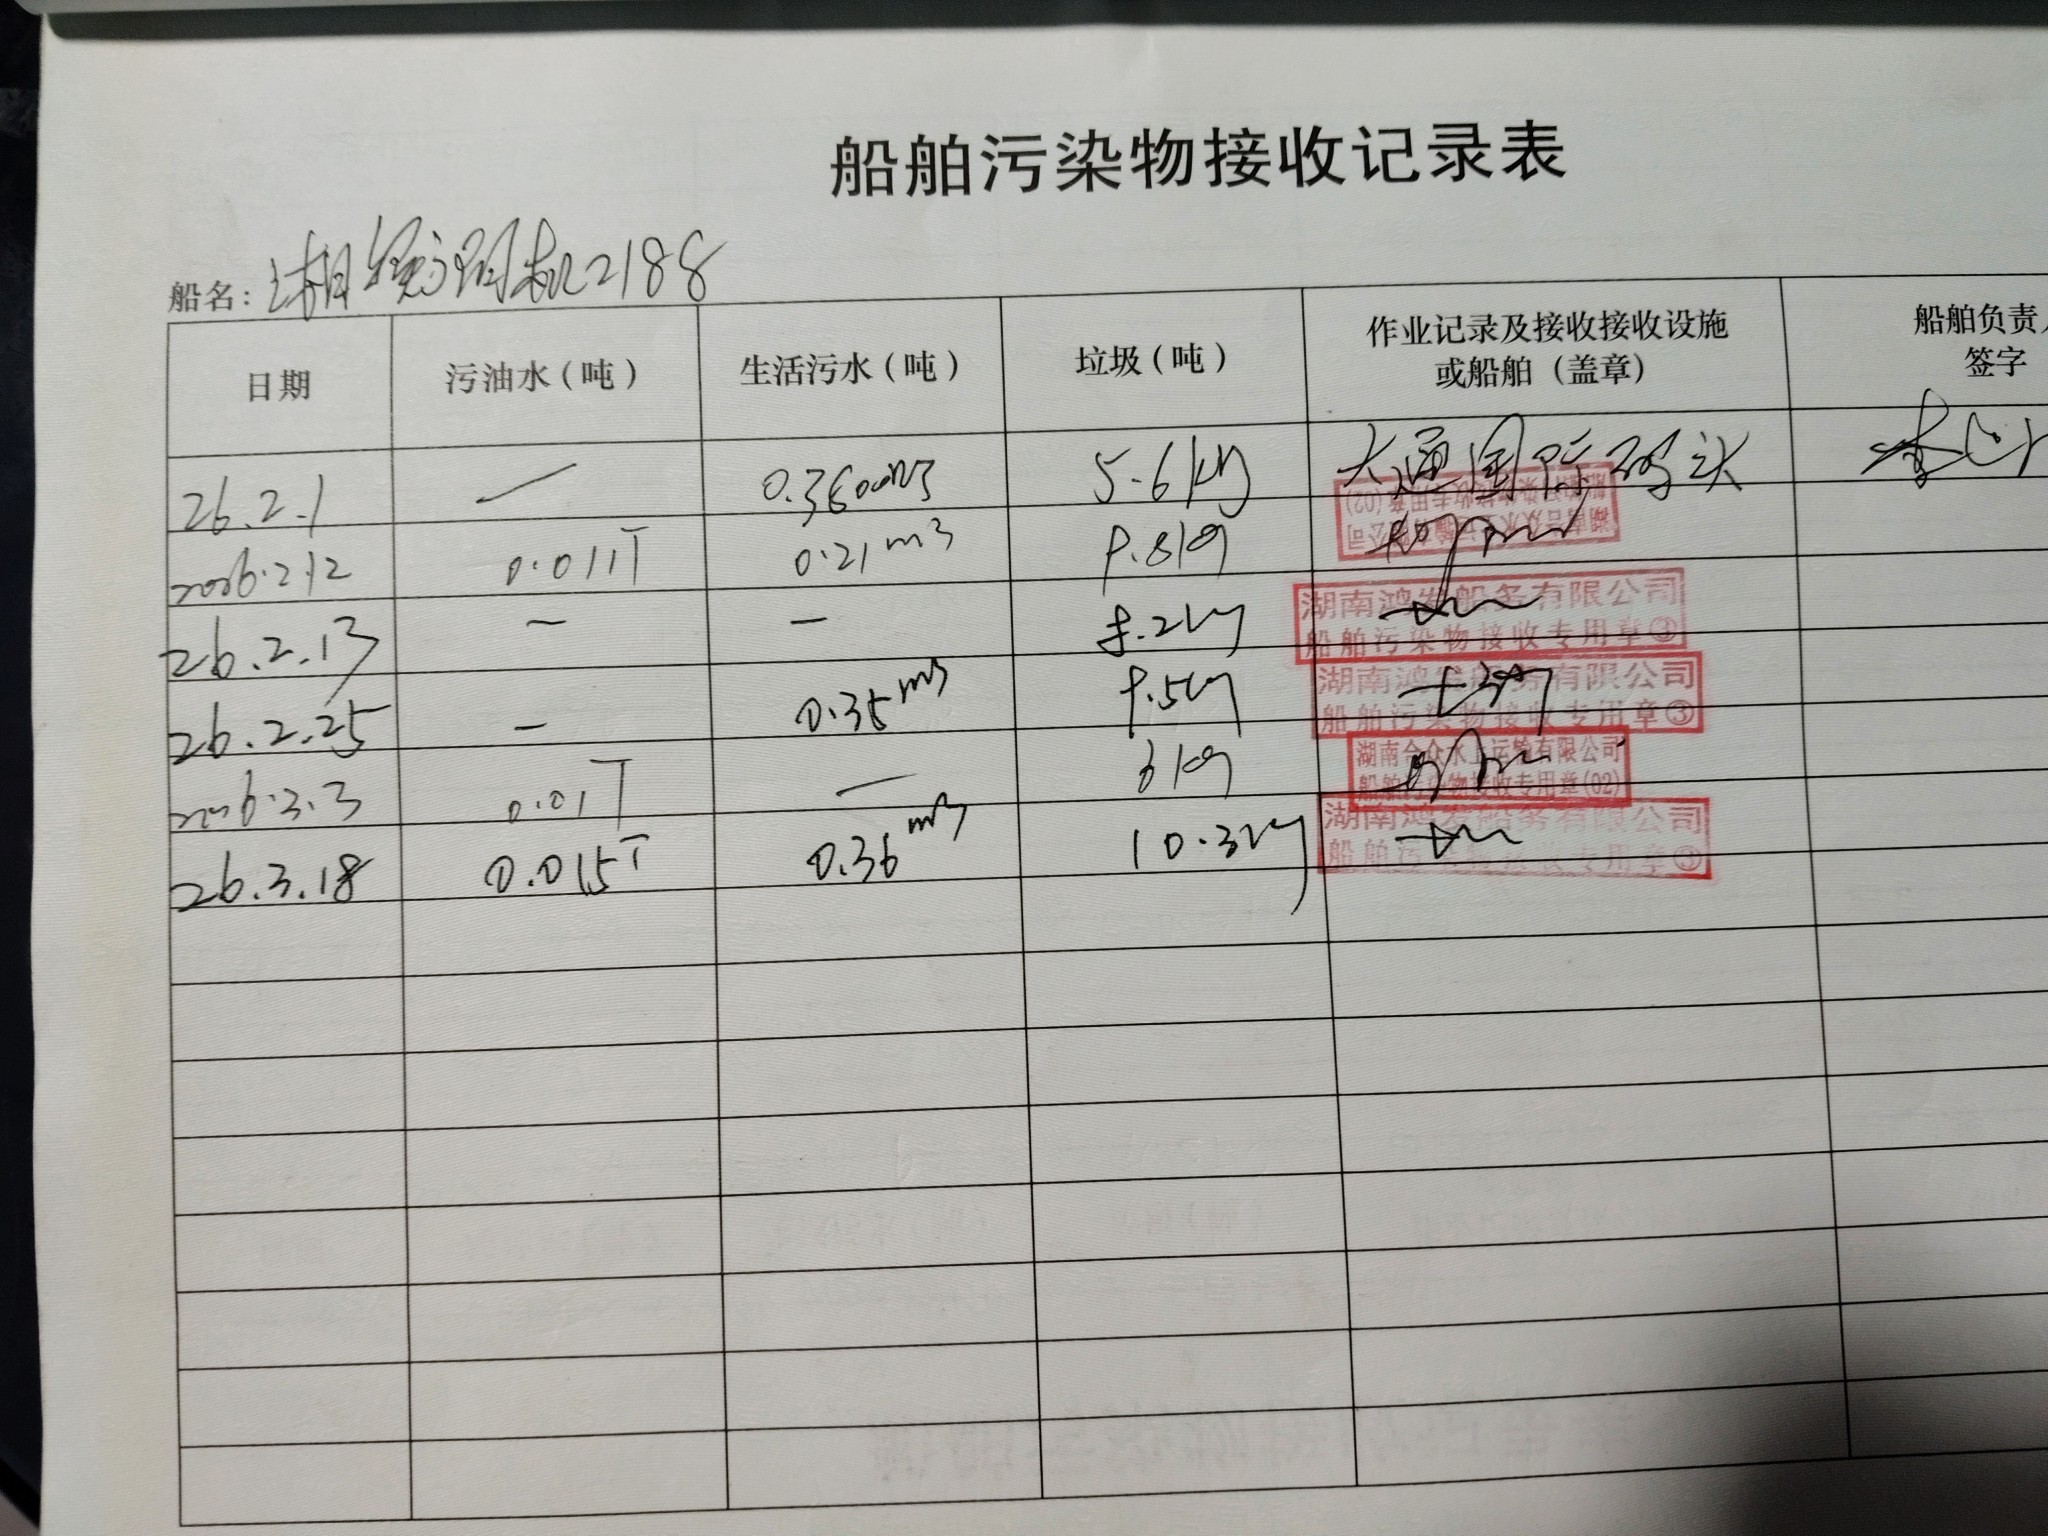 船舶污染物接收记录表
船名: 湘 机2188
日期 污油水(吨) 生活污水(吨) 垃圾(吨) 作业记录及接收接收设施或船舶(盖章) 船舶负责 签字
26.2.1 — 0.36 m3 5.6kg 大通国际码头
2026.2.12 0.011T 0.21m3 9.8kg
湖南合众水上运输有限公司
船舶污染物接收专用章(02)
26.2.13 — — 8.2kg
湖南鸿发船务有限公司
船舶污染物接收专用章③
26.2.25 — 0.35m3 9.5kg
湖南鸿发船务有限公司
船舶污染物接收专用章③
2026.3.3 0.01T — 6kg
湖南合众水上运输有限公司
船舶污染物接收专用章(02)
26.3.18 0.015T 0.36m3 10.3kg
湖南鸿发船务有限公司
船舶污染物接收专用章③